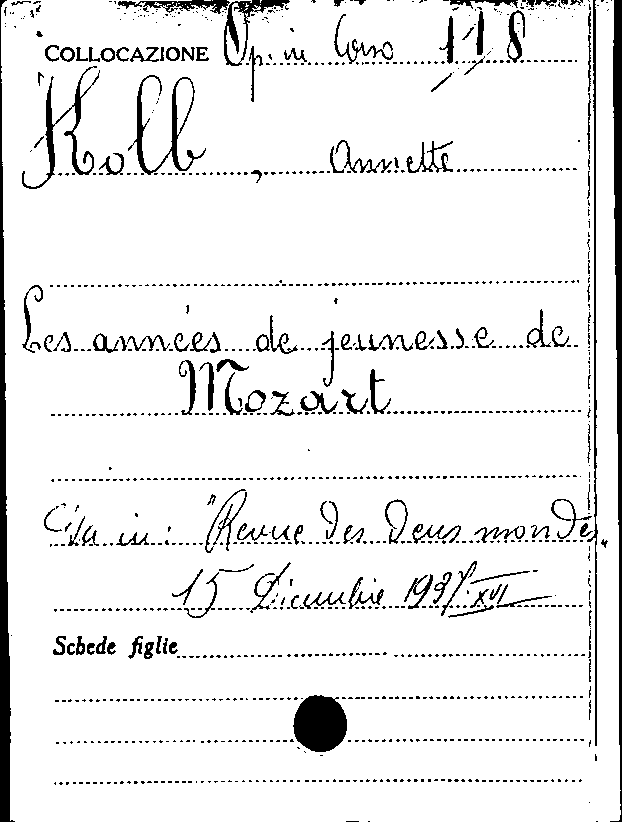 COLLOCAZIONE Op. in Corso 118
Kolb, Annette
Les années de jeunesse de
Mozart
in: "Revue des Deus mondes"
15 Dicembre 1937. XVI
Schede figlie